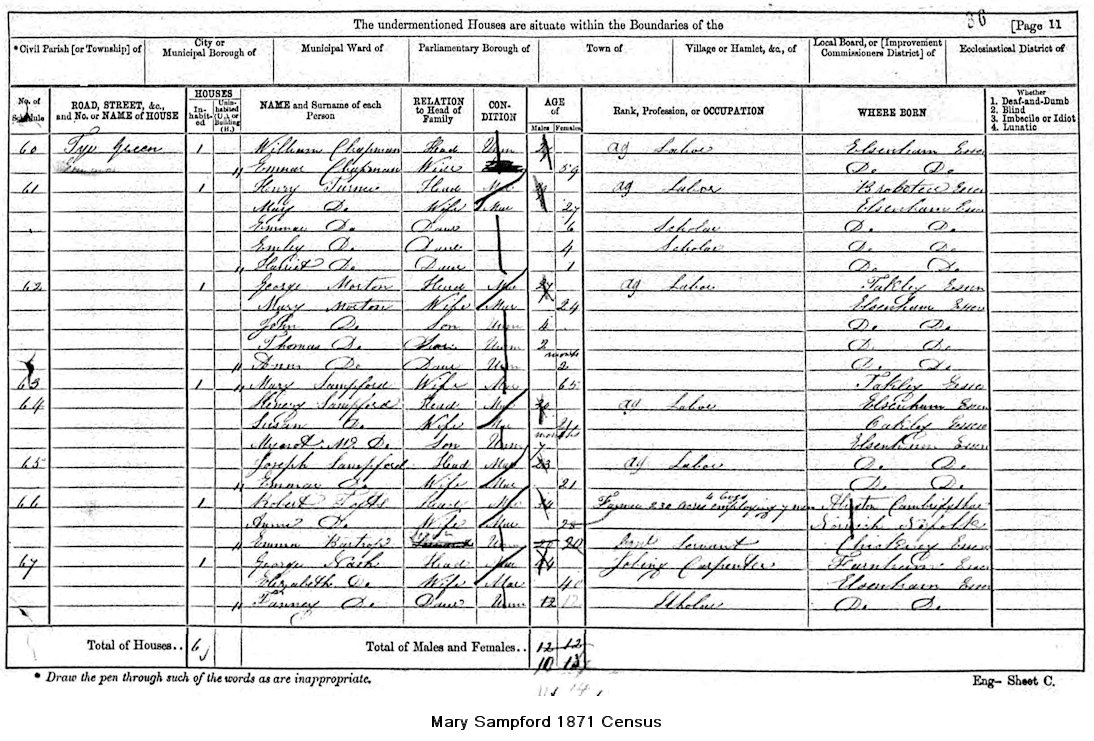 36
The undermentioned Houses are situate within the Boundaries of the [Page 11
*Civil Parish [or Township] of City or Municipal Borough of Municipal Ward of Parliamentary Borough of Town of Village or Hamlet, &c., of Local Board, or [Improvement Commissioners District] of Ecclesiastical District of
No. of Schedule ROAD, STREET, &c., and No. or NAME of HOUSE HOUSES In-habit-ed Unin-habited (U.), or Building (B.) NAME and Surname of each Person RELATION to Head of Family CON-DITION AGE of Males Females Rank, Profession, or OCCUPATION WHERE BORN Whether 1. Deaf-and-Dumb 2. Blind 3. Imbecile or Idiot 4. Lunatic
60 Tye Green 1 William Chapman Head Unm Ag Labor Elsenham Essex
Emma Chapman 59 Do Do
61 1 Henry Turner Head Mar Ag Labor Essex
Mary Do Wife Mar 27 Elsenham Essex
Emma Do Daur 6 Scholar Do Do
Emley Do Daur 4 Scholar Do Do
Harriet Do Daur 1 Do Do
62 1 George Morton Head Mar 27 Ag Labor Takley Essex
Mary Morton Wife Mar 24 Elsenham Essex
John Do Son Unm 4 Do Do
Thomas Do Unm 2 Do Do
Ann Do Daur Unm months 2 Do Do
63 1 Mary Sampford Wife Mar 65 Takley Essex
64 Henry Sampford Head Mar Ag Labor Elsenham Essex
Susan Do Wife Mar Essex
Do Son Unm months 7 Elsenham Essex
65 Joseph Sampford Head Mar 23 Ag Labor Do Do
Emma Do Wife Mar 21 Do Do
66 1 Robert Head Mar 34 Farmer 230 acres employing 7 men 4 boys
Do Wife Mar 28 Norwich Norfolk
Emma Unm 20 Servant Essex
67 1 George Nash Head Mar 44 Carpenter Essex
Elizabeth Do Wife Mar 40 Elsenham Essex
Fanney Do Daur Unm 12 12 Scholar Do Do
Total of Houses.. 6 Total of Males and Females.. 12 12
10 13
* Draw the pen through such of the words as are inappropriate. Eng- Sheet C.
Mary Sampford 1871 Census